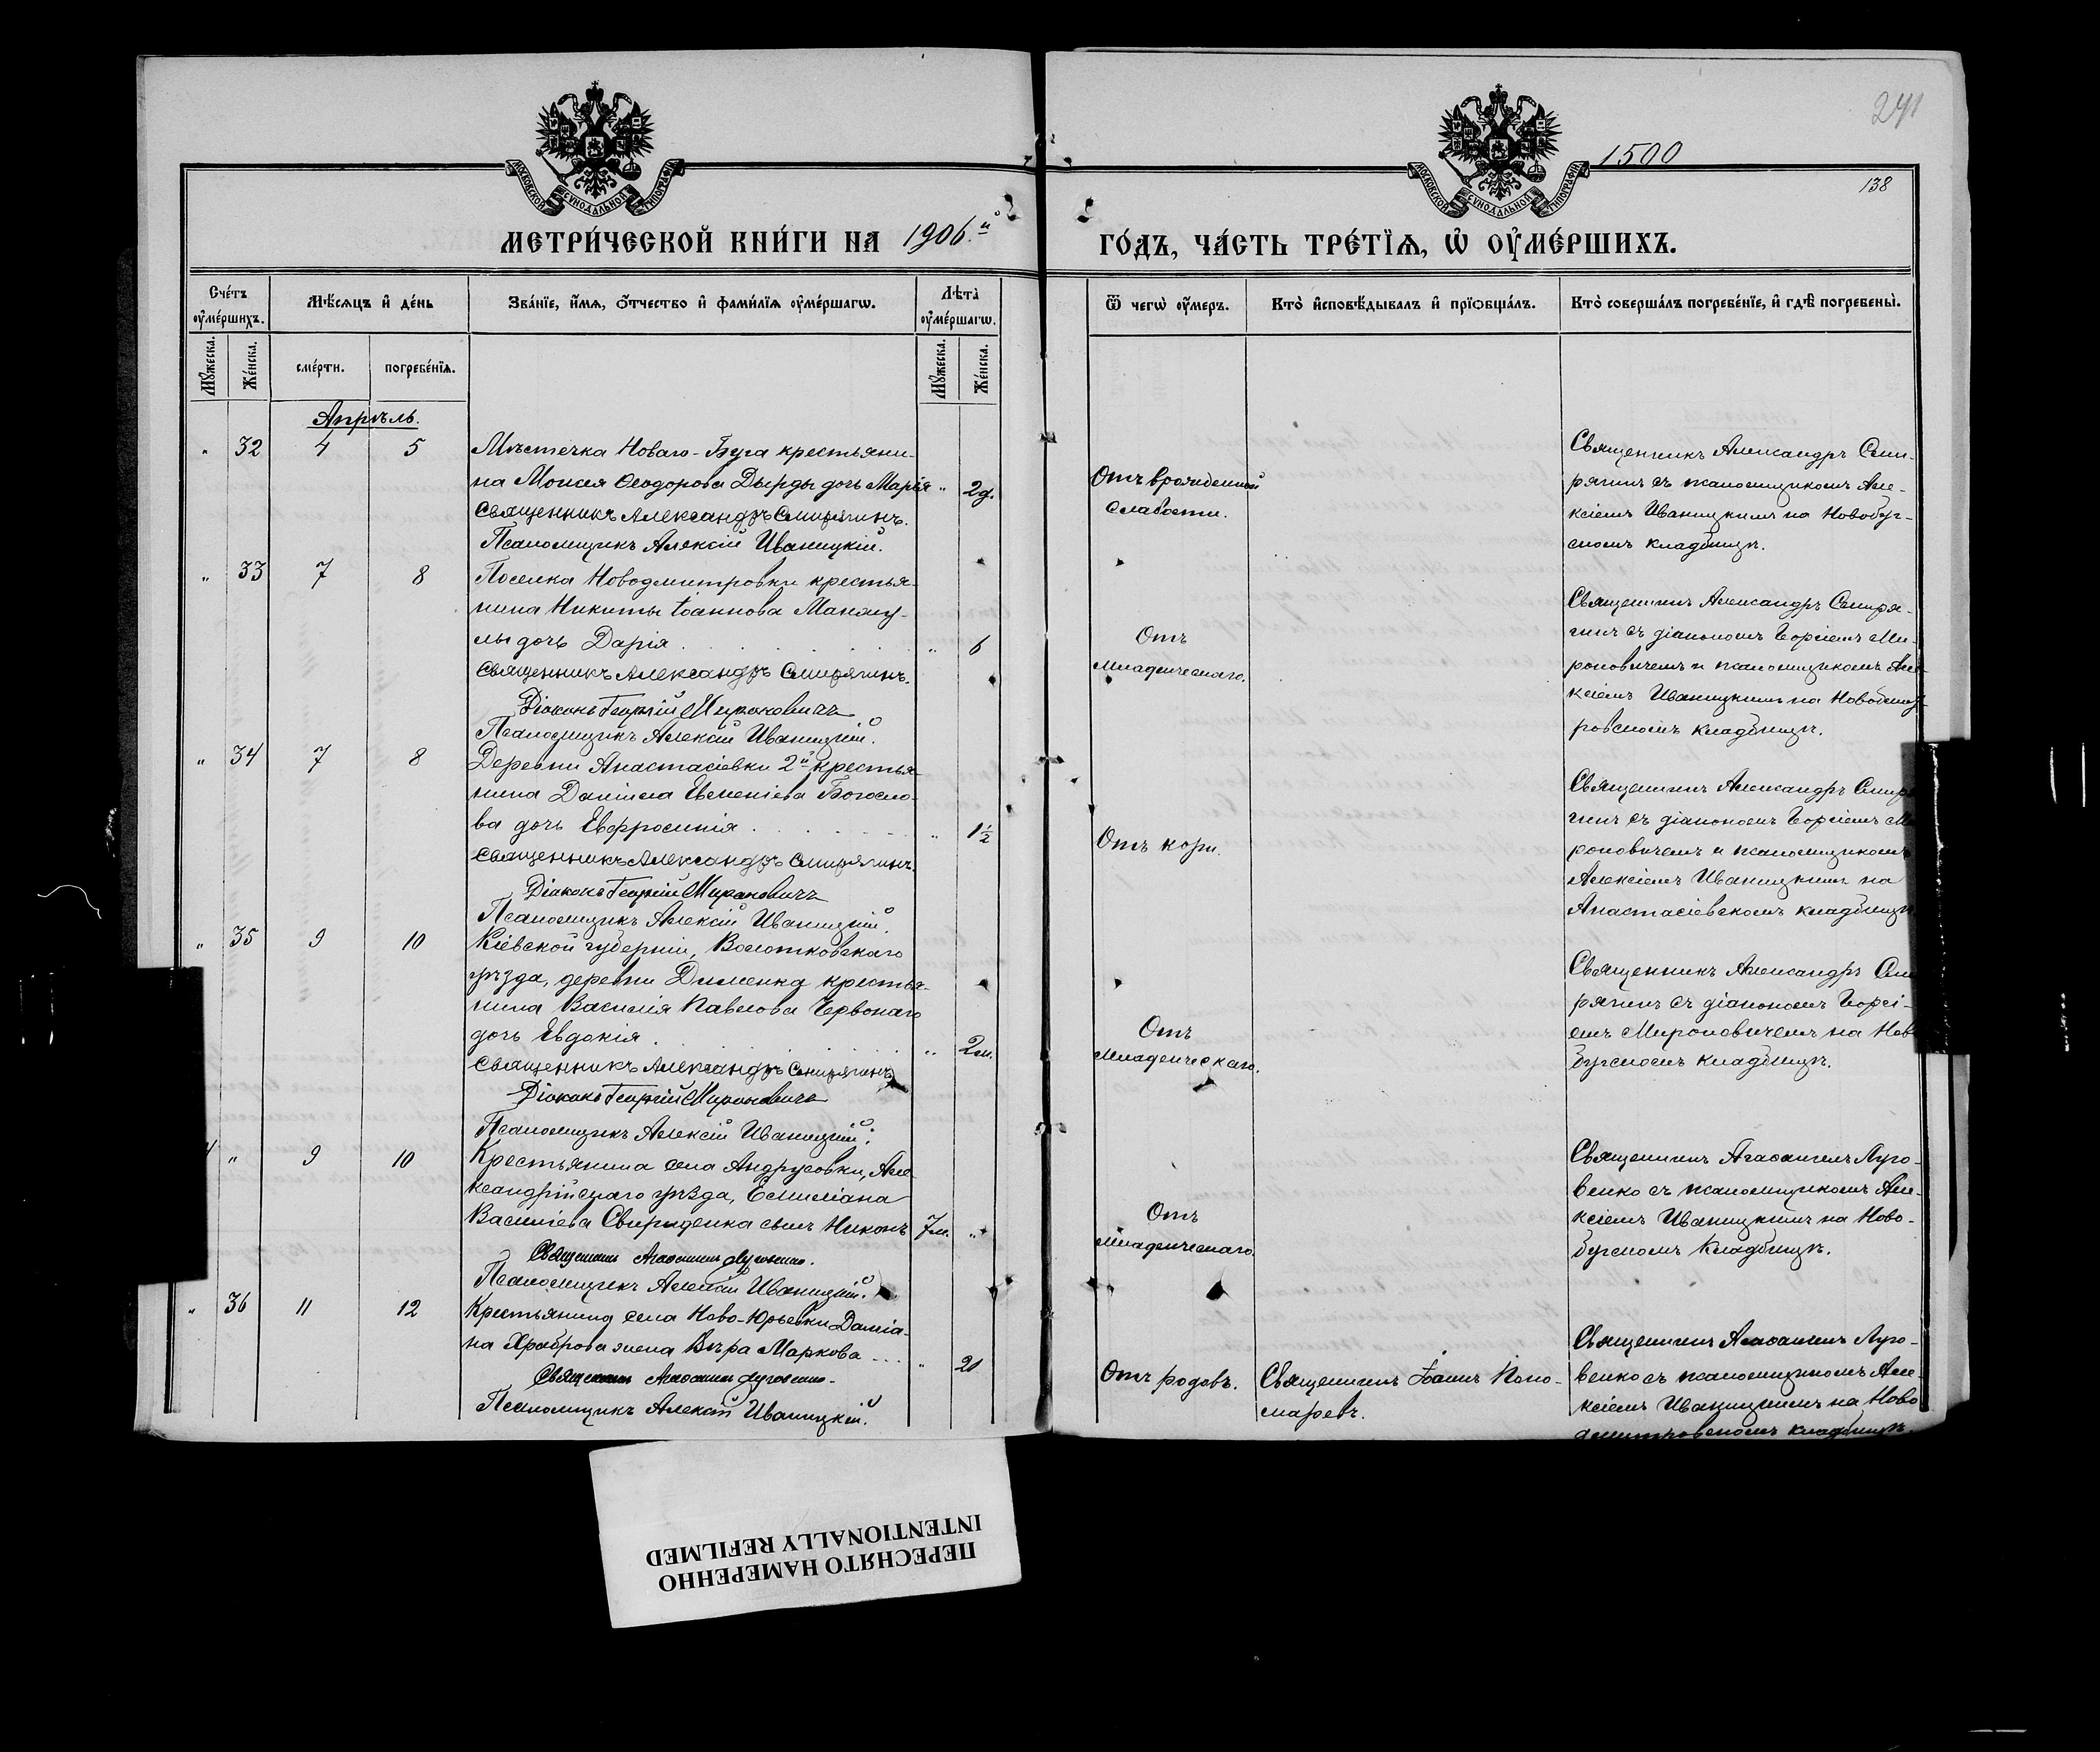 241
1500
138
МОСКОВСКОЙ СѴНОДАЛЬНОЙ ТИПОГРАФІИ
МОСКОВСКОЙ СѴНОДАЛЬНОЙ ТИПОГРАФІИ
МЕТРИ́ЧЕСКОЙ КНИ́ГИ НА 1906.й
ГО́ДЪ, ЧА́СТЬ ТРЕ́ТЇѦ, Ѡ҆ ОУ҆МЕ́РШИХЪ.
Сче́тъ оу҆ме́ршихъ.
Мѣ́сѧцъ и҆ де́нь
Зва́нїе, и҆́мѧ, ѻ҆́тчество и҆ фами́лїѧ оу҆ме́ршагѡ.
Лѣ́та̀ оу҆ме́ршагѡ.
Ѿ чегѡ̀ оу҆́меръ.
Кто̀ и҆сповѣ́дывалъ и҆ прїѻбща́лъ.
Кто̀ соверша́лъ погребе́нїе, и҆ гдѣ̀ погребены̀.
Мꙋ́жеска.
Же́нска.
сме́рти.
погребе́нїѧ.
Мꙋ́жеска.
Же́нска.
Апрѣль.
" 32 4 5
Мѣстечка Новаго-Буга крестьяни-
на Моисея Ѳеодорова Дырды дочь Марія " 2 д.
Священникъ Александръ Смирягинъ.
Псаломщикъ Алексій Иваницкій.
Отъ врожденной
слабости.
Священникъ Александръ Сми-
рягинъ съ псаломщикомъ Але-
ксіемъ Иваницкимъ на Новобуг-
скомъ кладбищѣ.
" 33 7 8
Поселка Новодмитровки крестья-
нина Никиты Іоаннова Маням-
лы дочь Дарія " 6
Священникъ Александръ Смирягинъ.
Діаконъ Георгій Мироновичъ
Псаломщикъ Алексій Иваницкій.
Отъ
младенческаго.
Священникъ Александръ Смиря-
гинъ съ діакономъ Георгіемъ Ми-
роновичемъ и псаломщикомъ Але-
ксіемъ Иваницкимъ на Новодмит-
ровскомъ кладбищѣ.
" 34 7 8
Деревни Анастасіевки 2й крестья-
нина Даніила Евменіева Богосло-
ва дочь Евфросинія " 1½
Священникъ Александръ Смирягинъ.
Діаконъ Георгій Мироновичъ
Псаломщикъ Алексій Иваницкій.
Отъ кори.
Священникъ Александръ Смиря
гинъ съ діакономъ Георгіемъ Ми
роновичемъ и псаломщикомъ
Алексіемъ Иваницкимъ на
Анастасіевскомъ кладбищѣ
" 35 9 10
Кіевской губерніи,
уѣзда, деревни крестья-
нина Василія Павлова Червонаго
дочь Евдокія " 2 м.
Священникъ Александръ Смирягинъ
Діаконъ Георгій Мироновичъ
Псаломщикъ Алексій Иваницкій.
Отъ
младенческаго.
Священникъ Александръ Сми
рягинъ съ діакономъ Георгі-
емъ Мироновичемъ на Ново
бугскомъ кладбищѣ.
" 9 10
Крестьянина села Андрусовки, Але-
ксандрійскаго уѣзда, Емиліана
Василіева Свириденка сынъ Никонъ 7 м. "
Священникъ Агаѳангелъ Луговенко.
Псаломщикъ Алексій Иваницкій.
Отъ
младенческаго.
Священникъ Агаѳангелъ Луго-
венко съ псаломщикомъ Але-
ксіемъ Иваницкимъ на Ново-
бугскомъ кладбищѣ.
" 36 11 12
Крестьянина села Ново-Юрьевки Даміа-
на Храброва жена Вѣра Маркова " 20
Священникъ Агаѳангелъ Луговенко.
Псаломщикъ Алексій Иваницкій.
Отъ родовъ.
Священникъ Іоаннъ Поно-
маревъ.
Священникъ Агаѳангелъ Луго-
венко съ псаломщикомъ Але-
ксіемъ Иваницкимъ на Ново
дмитровскомъ кладбищѣ.
ПЕРЕСНЯТО НАМЕРЕННО
INTENTIONALLY REFILMED